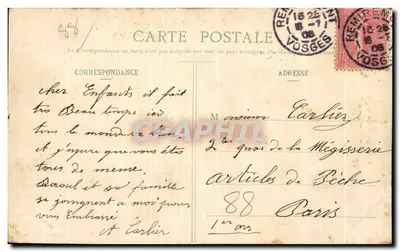 88
CARTE POSTALE
La Correspondance au recto n'est pas acceptée par tous les pays étrangers
REMIREMONT
16 25
16 -7
08
VOSGES
REMIREMONT
16 25
16 -7
08
VOSGES
CORRESPONDANCE
ADRESSE
cher Enfants il fait
tres Beau temps ici
tous le monde
et j'espere que vous êtes
tous de meme.
et sa famille
se joingnent a moi pour
vous Embrassé
A Carlier
Monsieur Carlier
2 quai de la Mégisserie
articles de Pêche
Paris
88
1er arr